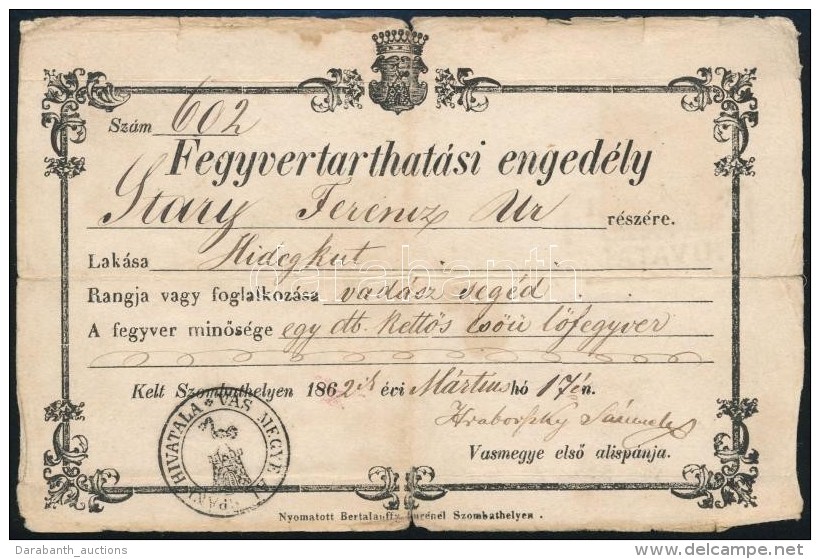 Szám 602
Fegyvertarthatási engedély
Stary Ferencz Ur részére.
Lakása Hidegkut
Rangja vagy foglalkozása vadász segéd
A fegyver minősége egy db. kettős csöű lőfegyver
Kelt Szombathelyen 1862ik évi Mártius hó 17én.
Vasmegye első alispánja.
VAS MEGYE HIVATALA
Nyomatott Bertalanffy Szombathelyen.
darabanth
Darabanth_auctions
delcampe.net